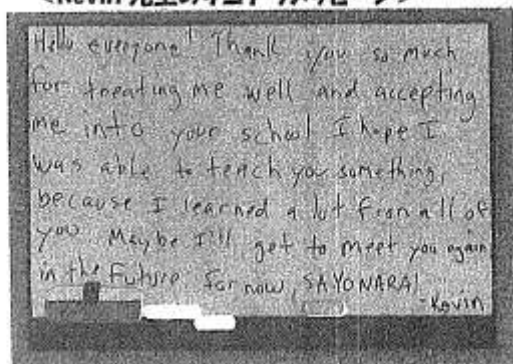 Hello everyone! Thank you so much
for treating me well and accepting
me into your school I hope I
was able to teach you something,
because I learned a lot from all of
you. Maybe I'll get to meet you again
in the future. For now, SAYONARA!
-Kevin